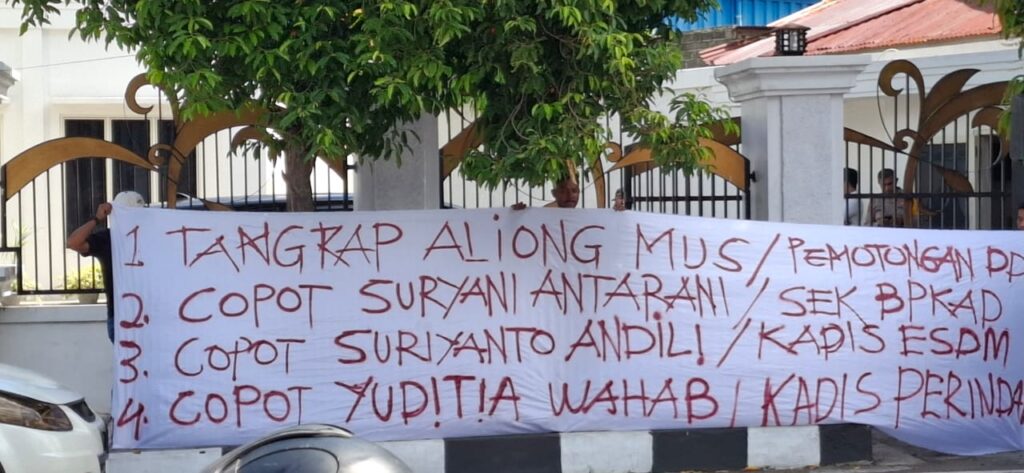 1 TANGKAP ALiONG MUS / PEMOTONGAN DD
2. COPOT SURYANI ANTARANI / SEK BPKAD
3. COPOT SURIYANTO ANDILI / KADIS ESDM
4. COPOT YUDITIA WAHAB / KADIS PERINDA